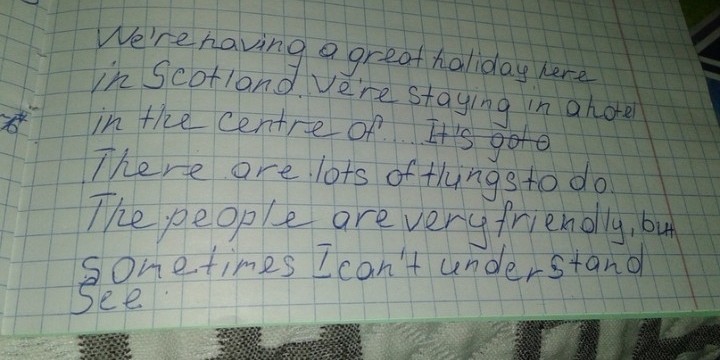 We're having a great haliday here
in Scotland. Ve're staying in a hotel
in the centre of.... It's goto
There are lots of thyngs to do.
The people are very friendly, but
sometimes I can't understand
See.